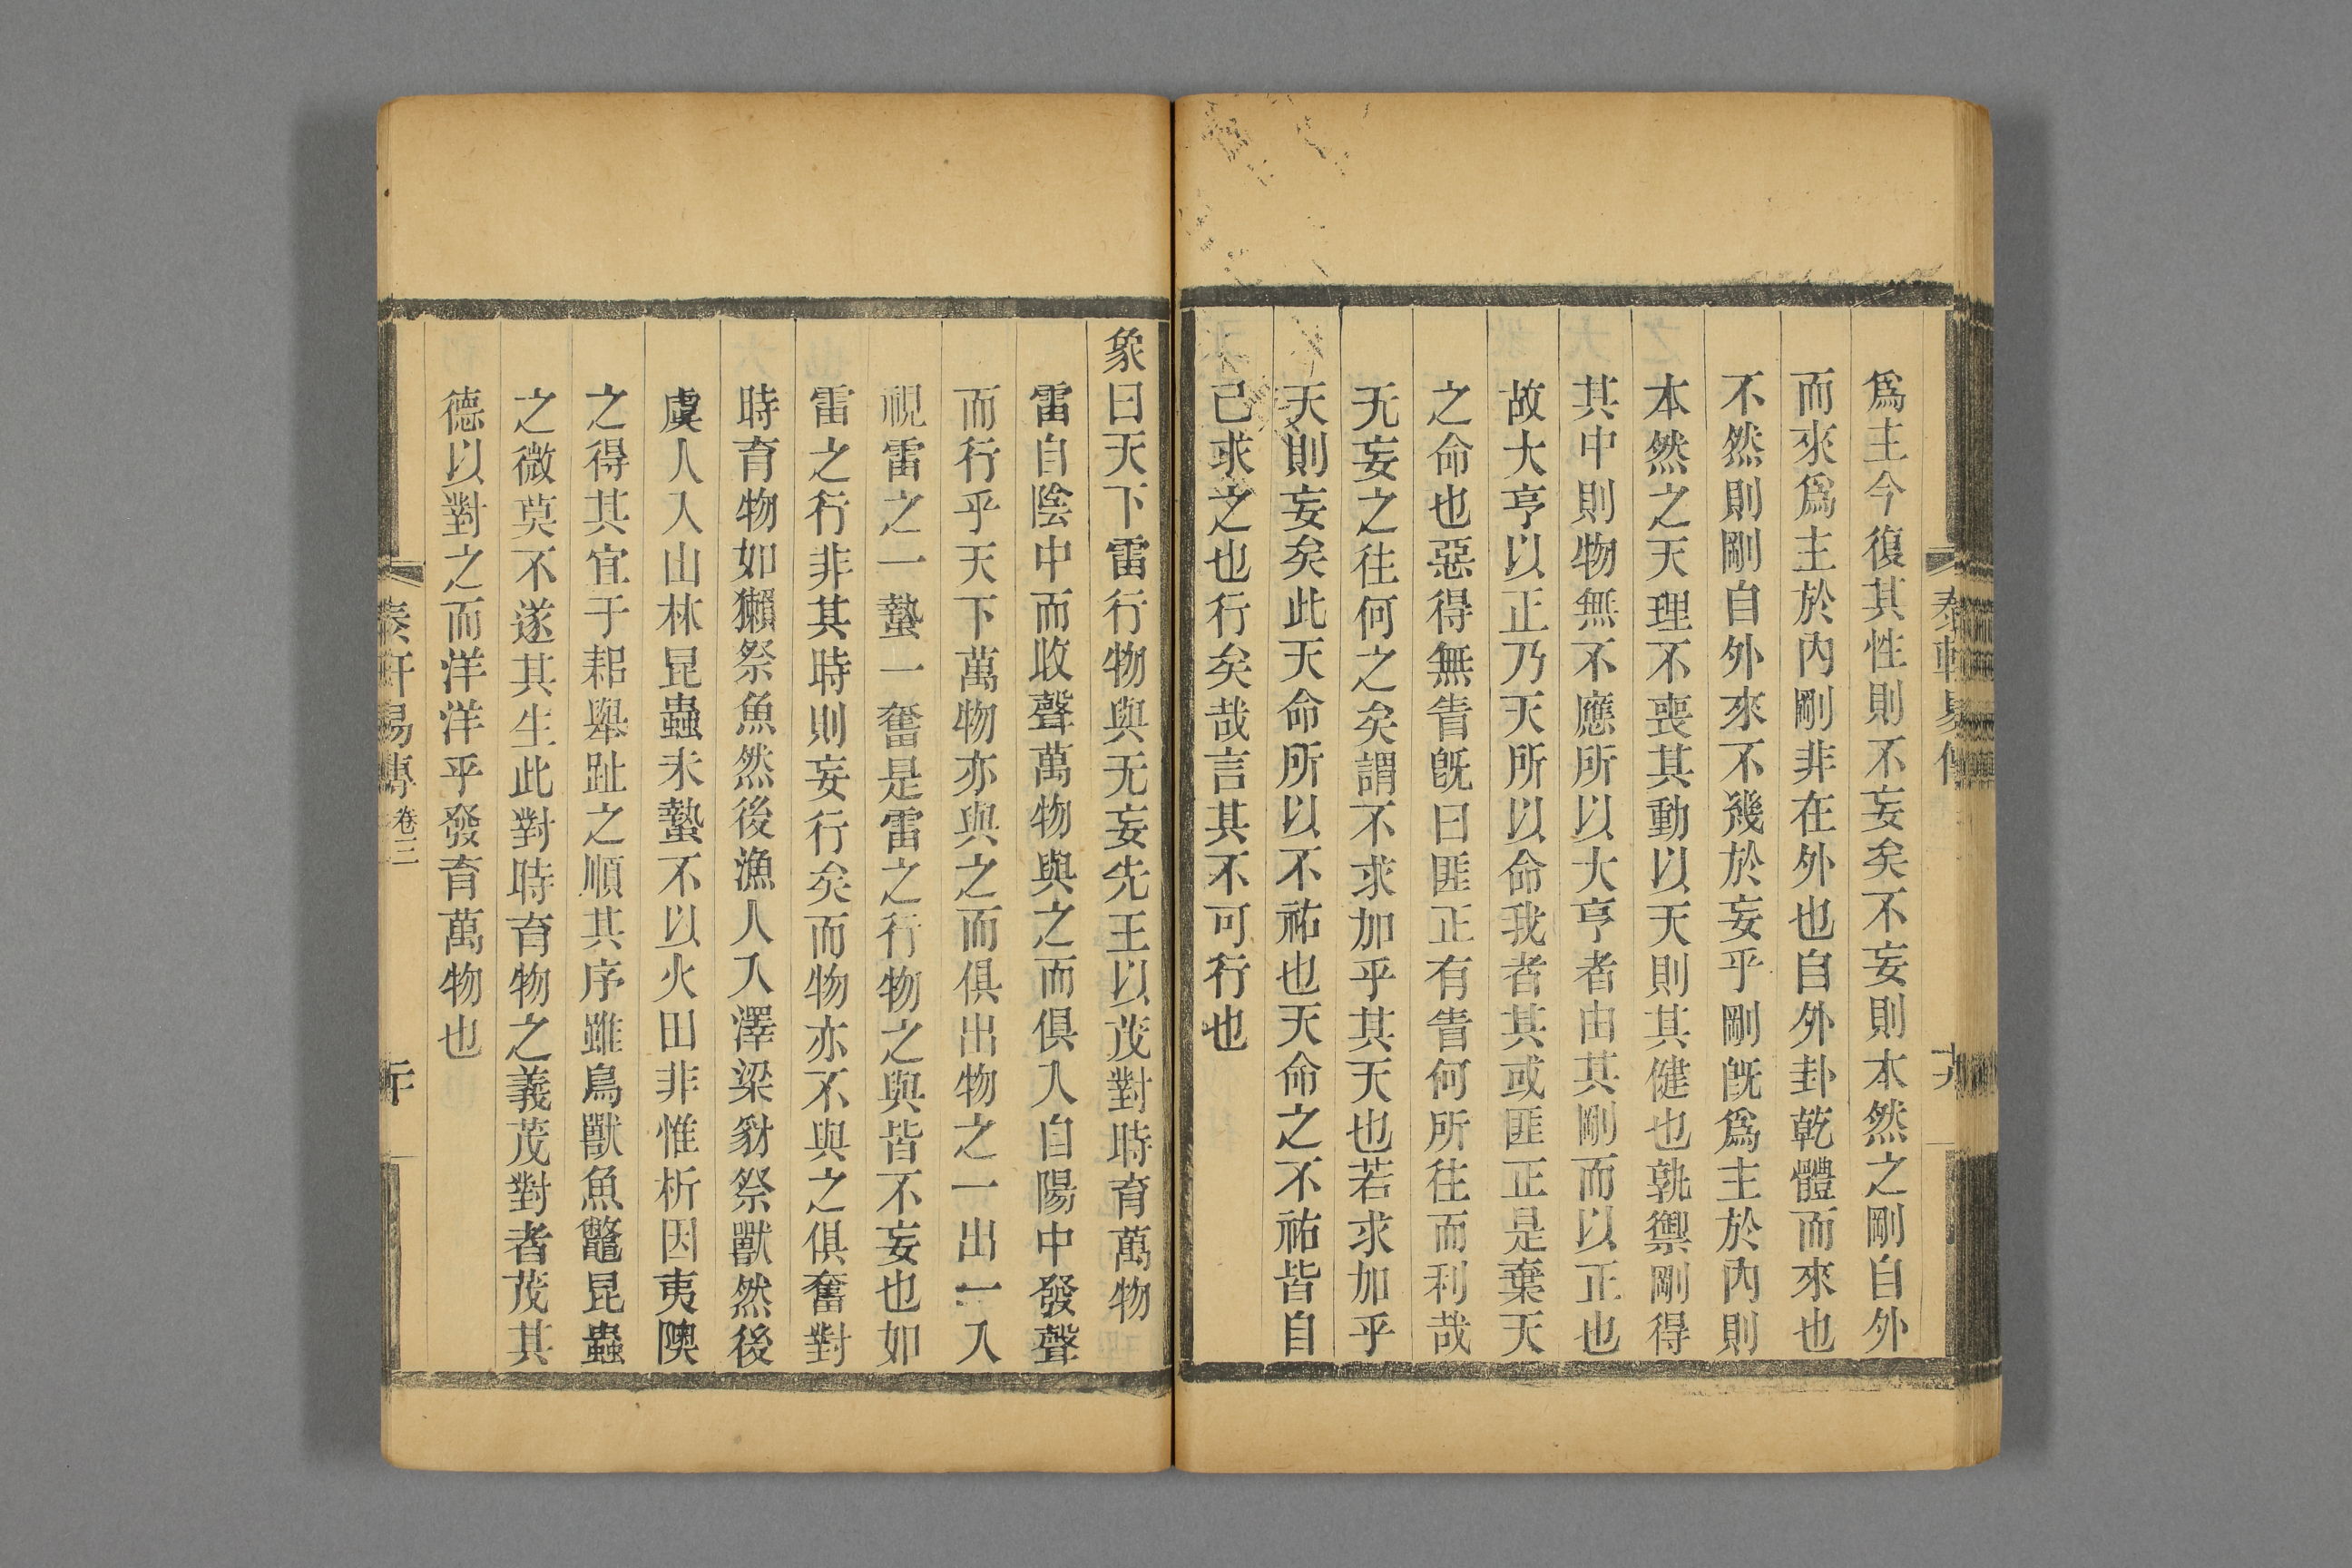 爲主今復其性則不妄矣不妄則本然之剛自外
而來爲主於內剛非在外也自外卦乾體而來也
不然則剛自外來不幾於妄乎剛旣爲主於內則
本然之天理不喪其動以天則其健也孰禦剛得
其中則物無不應所以大亨者由其剛而以正也
故大亨以正乃天所以命我者其或匪正是棄天
之命也惡得無眚旣曰匪正有眚何所往而利哉
无妄之往何之矣謂不求加乎其天也若求加乎
天則妄矣此天命所以不祐也天命之不祐皆自
己求之也行矣哉言其不可行也
象曰天下雷行物與无妄先王以茂對時育萬物
雷自陰中而收聲萬物與之而俱入自陽中發聲
而行乎天下萬物亦與之而俱出物之一出一入
視雷之一蟄一奮是雷之行物之與皆不妄也如
雷之行非其時則妄行矣而物亦不與之俱奮對
時育物如獺祭魚然後漁人入澤梁豺祭獸然後
虞人入山林昆蟲未蟄不以火田非惟析因夷隩
之得其宜于耜舉趾之順其序雖鳥獸魚鼈昆蟲
之微莫不遂其生此對時育物之義茂對者茂其
德以對之而洋洋乎發育萬物也
泰軒易傳 卷三